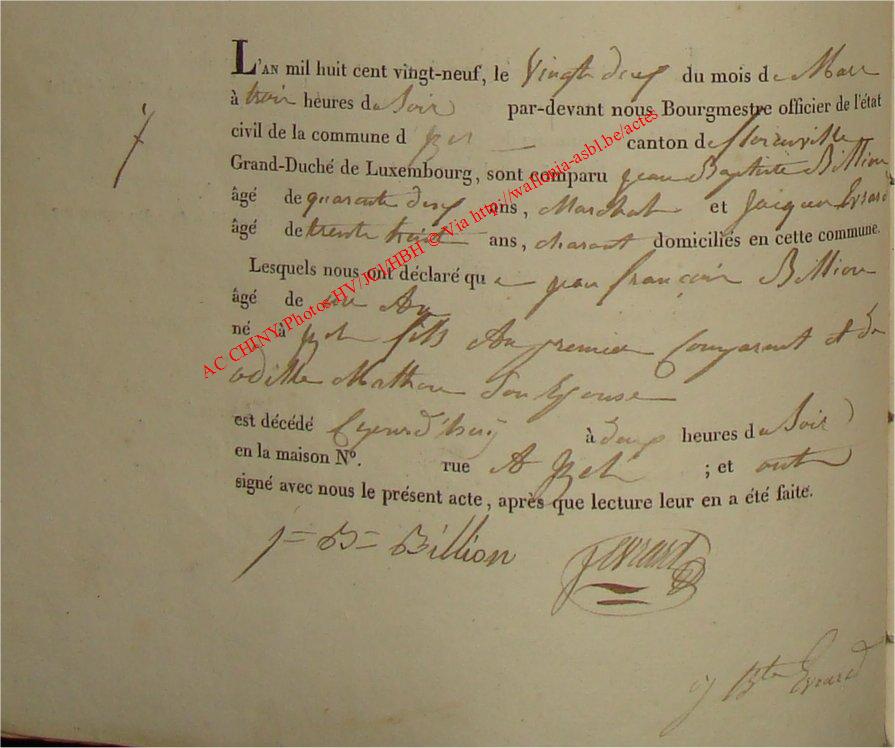 L'AN mil huit cent vingt-neuf, le Vingt deux du mois de Mars
à trois heures du Soir par-devant nous Bourgmestre officier de l'état
civil de la commune d Izel canton de florenville
Grand-Duché de Luxembourg, sont comparu jean Baptiste Billion
âgé de quarante deux ans, Marchal et Jacques Evrard
âgé de trente huit ans, domiciliés en cette commune.
Lesquels nous ont déclaré que jean françois Billion
âgé de un An
né à Izel fils du premier Comparant et de
odille Mathieu Son Epouse
est décédé à deux heures du Soir
en la maison N°. rue A Izel ; et ont
signé avec nous le présent acte, après que lecture leur en a été faite.
j = B = Billion
J evrard
j Bte Evrard
AC CHINY/Photos HV/JCl/HBH © Via http://wallonia-asbl.be/actes